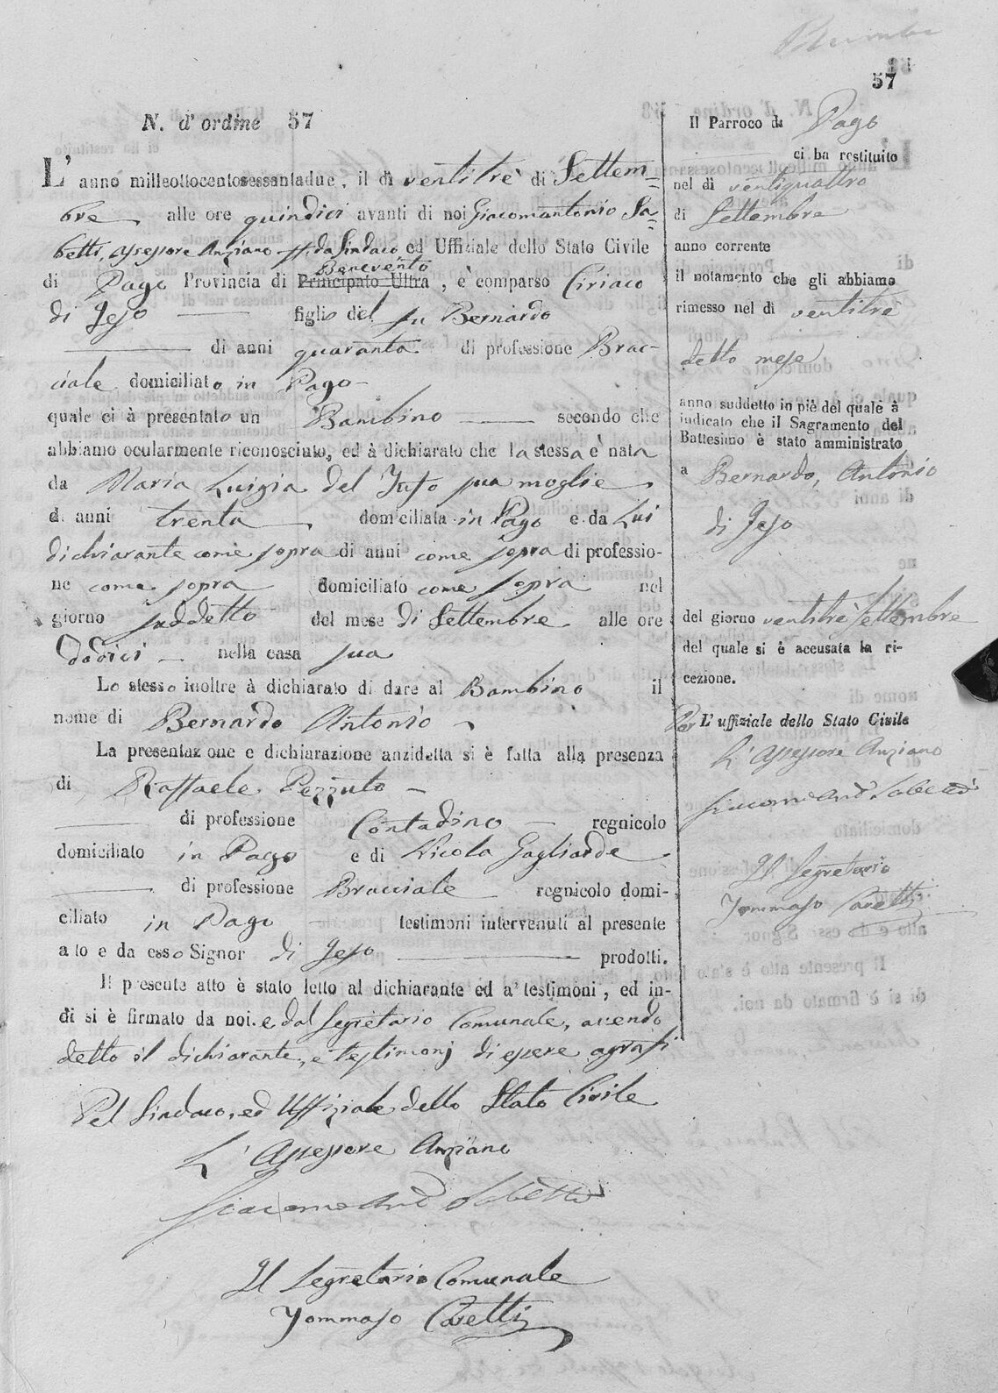 57
N. d'ordine 57
L'anno milleottocentosessantadue, il di ventitrè di Settem=
bre alle ore quindici avanti di noi Giacomantonio Sa=
betti, Assessore Anziano ff. da Sindaco ed Uffiziale dello Stato Civile
Benevento
di Pago Provincia di Principato Ultra, è comparso Ciriaco
di Jeso figlio del fu Bernardo
di anni quaranta di professione Brac-
ciale domiciliato in Pago
quale ci à presentato un Bambino secondo che
abbiamo ocularmente riconosciuto, ed à dichiarato che la stessa è nata
da Maria Luigia del Jufo sua moglie
di anni trenta domiciliata in Pago e da Lui
dichiarante come sopra di anni come sopra di professio-
ne come sopra domiciliato come sopra nel
giorno suddetto del mese di Settembre alle ore
dodici nella casa sua
Lo stesso inoltre à dichiarato di dare al Bambino il
nome di Bernardo Antonio
La presentazione e dichiarazione anzidetta si è fatta alla presenza
di Raffaele Pezzuto
di professione Contadino regnicolo
domiciliato in Pago e di Nicola Gagliarde
di professione Bracciale regnicolo domi-
ciliato in Pago testimoni intervenuti al presente
atto e da esso Signor di Jeso prodotti.
Il presente atto è stato letto al dichiarante ed a' testimoni, ed in-
di si è firmato da noi e dal Segretario Comunale, avendo
detto il dichiarante, e testimonj di essere agrafi
Pel Sindaco, ed Uffiziale dello Stato Civile
L'Assessore Anziano
Giacomantò Sabetti
Il Segretario Comunale
Tommaso Caretti
Il Parroco di Pago
ci ha restituito
nel dì ventiquattro
di Settembre
anno corrente
il notamento che gli abbiamo
rimesso nel dì ventitrè
detto mese
anno suddetto in piè del quale à
indicato che il Sagramento del
Battesimo è stato amministrato
a Bernardo, Antonio
di Jeso
del giorno ventitrè Settembre
del quale si è accusata la ri-
cezione.
Per L'uffiziale dello Stato Civile
L'Assessore Anziano
Giacomantò Sabetti
Il Segretario
Tommaso Caretti